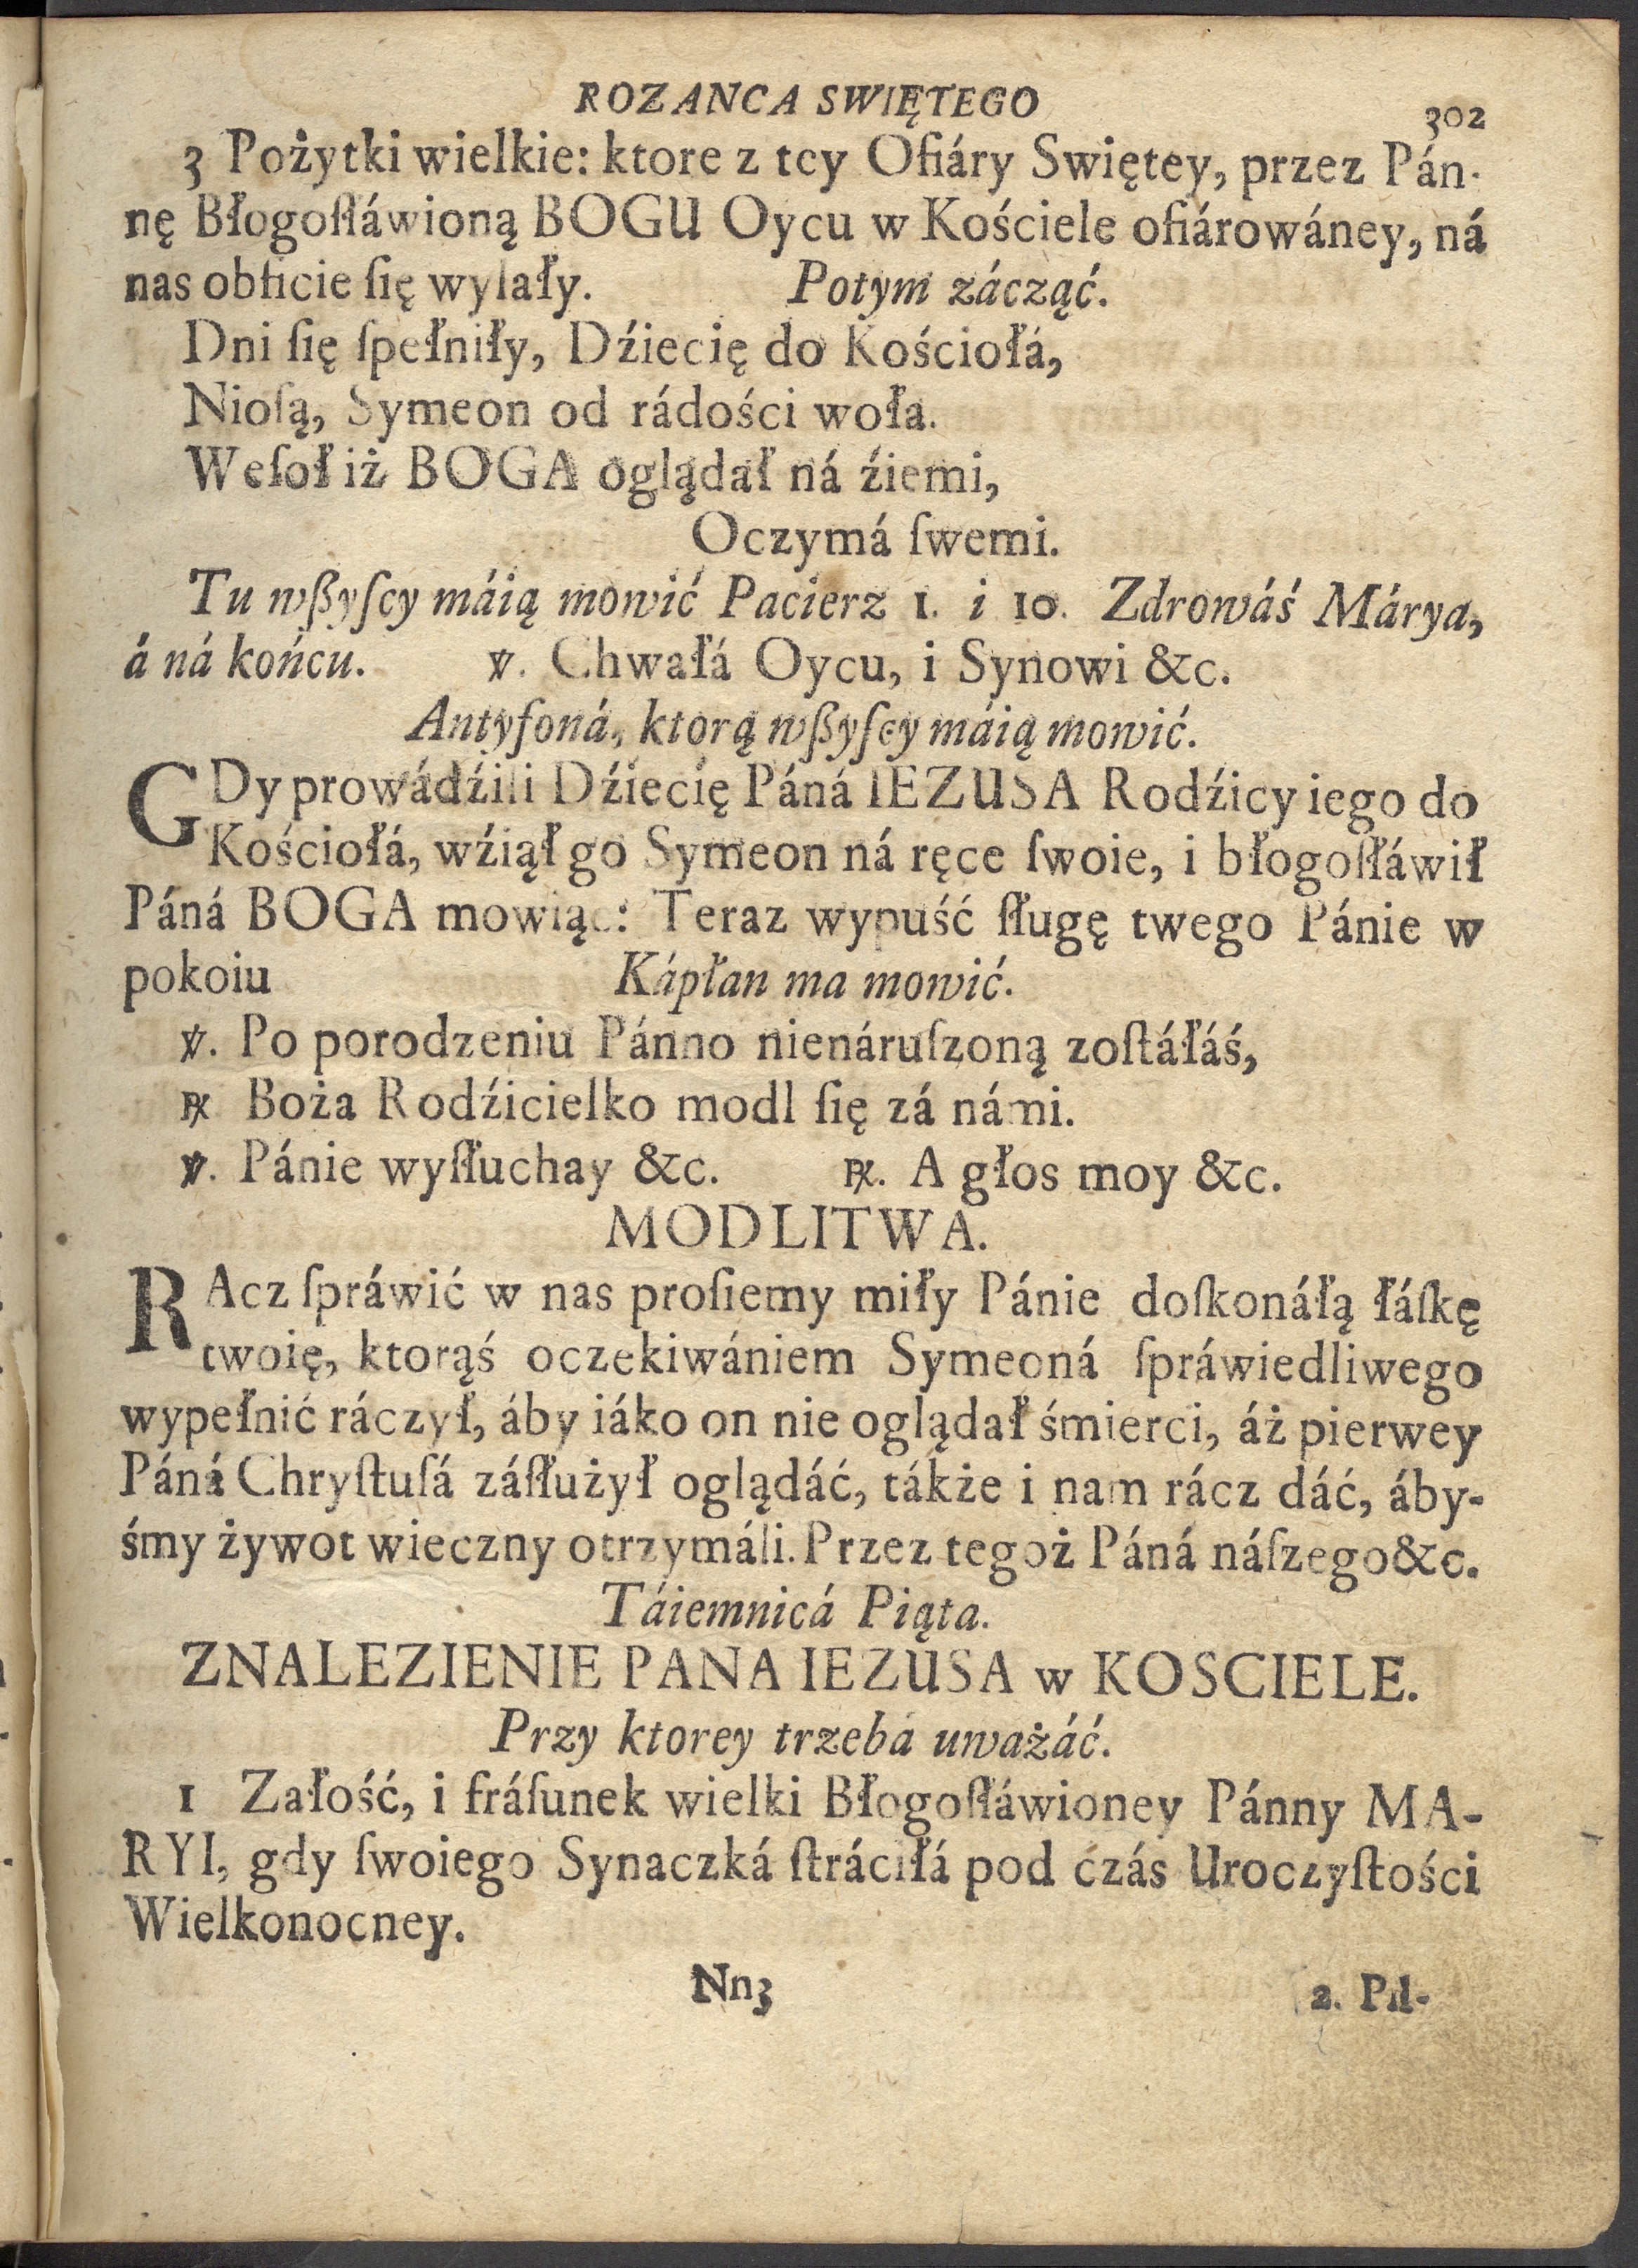 ROZANCA SWIĘTEGO 302
3 Pożytki wielkie: ktore z tey Ofiáry Swiętey, przez Pán-
nę Błogoſłáwioną BOGU Oycu w Kościele ofiárowáney, ná
nas obficie ſię wylały. Potym zácząć.
Dni ſię ſpełniły, Dźiecię do Kościołá,
Nioſą, Symeon od rádości woła.
Weſoł iż BOGA oglądał ná źiemi,
Oczymá ſwemi.
Tu wßyſcy máią mowić Pacierz 1. i 10. Zdrowáś Márya,
á ná końcu. ℣. Chwałá Oycu, i Synowi &c.
Antyfoná, ktorą wßyſcy máią mowić.
GDy prowádźili Dźiecię Páná IEZUSA Rodźicy iego do
Kościołá, wźiął go Symeon ná ręce ſwoie, i błogoſłáwił
Páná BOGA mowiąc: Teraz wypuść ſługę twego Pánie w
pokoiu Kápłan ma mowić.
℣. Po porodzeniu Pánno nienáruſzoną zoſtáłáś,
℟ Boża Rodźicielko modl ſię zá námi.
℣. Pánie wyſłuchay &c. ℟. A głos moy &c.
MODLITWA.
RAcz ſpráwić w nas proſiemy miły Pánie doſkonáłą łáſkę
twoię, ktorąś oczekiwániem Symeoná ſpráwiedliwego
wypełnić ráczył, áby iáko on nie oglądał śmierci, áż pierwey
Páná Chryſtuſá záſłużył oglądáć, tákże i nam rácz dáć, áby-
śmy żywot wieczny otrzymáli. Przez tegoż Páná náſzego &c.
Táiemnicá Piąta.
ZNALEZIENIE PANA IEZUSA w KOSCIELE.
Przy ktorey trzebá uważáć.
1 Załość, i fráſunek wielki Błogoſłáwioney Pánny MA-
RYI, gdy ſwoiego Synaczká ſtráciłá pod czás Uroczyſtości
Wielkonocney.
Nn3 2. Pil-